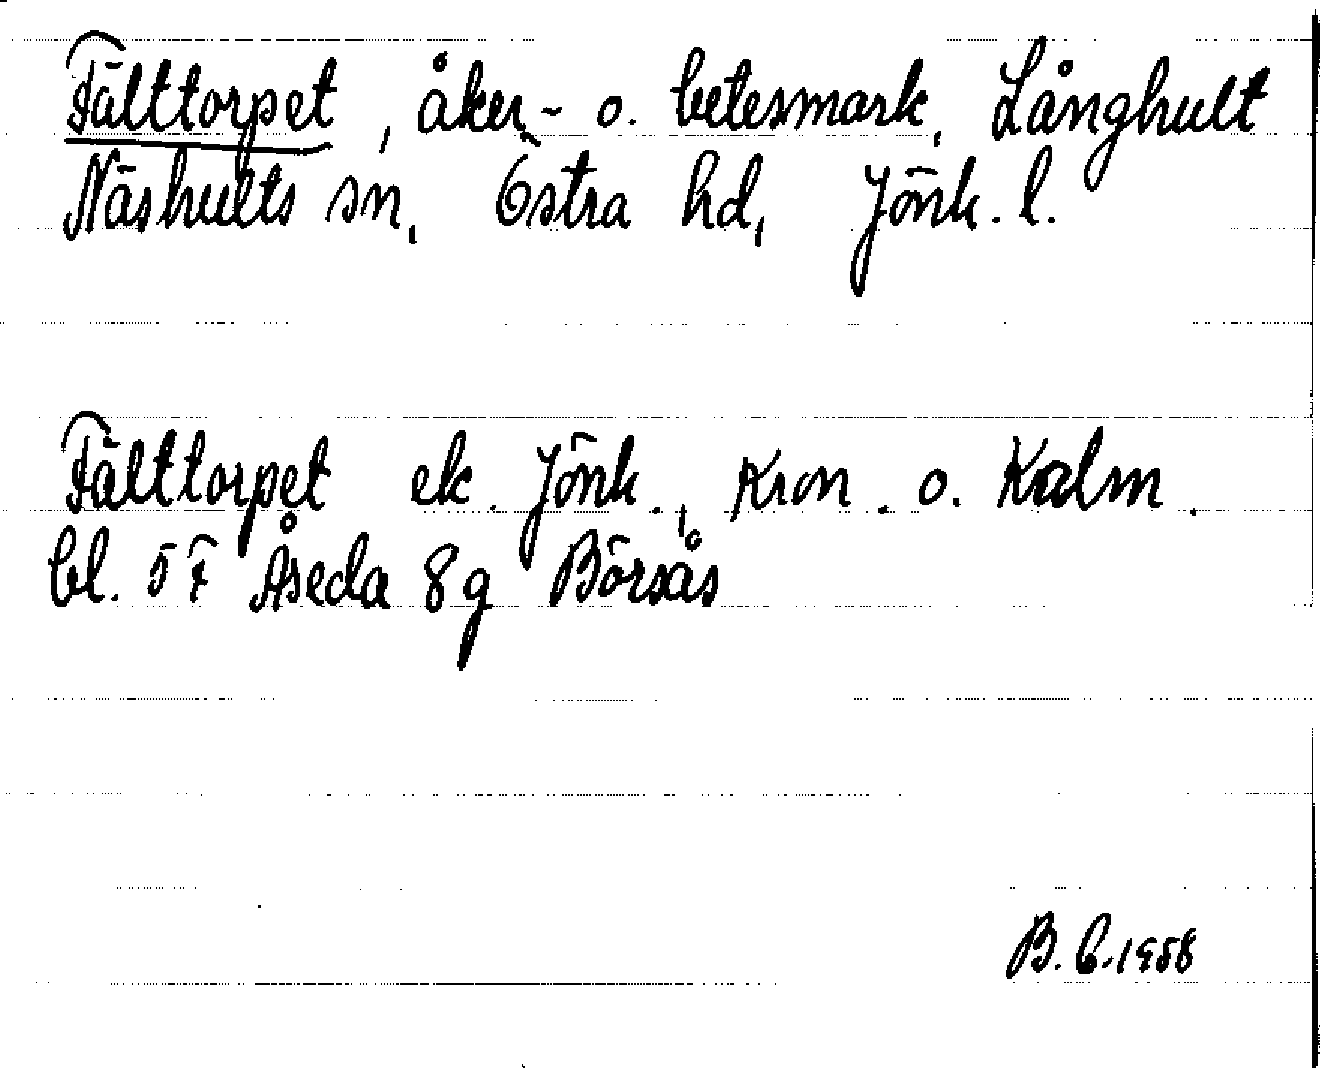 Fälttorpet, åker- o. betesmark, Långhult
Näshults sn, Östra hd, Jönk. l.
Fälttorpet ek. Jönk., Kron. o. Kalm.
bl. 5F Åseda 8g Börsås
B. C. 1958